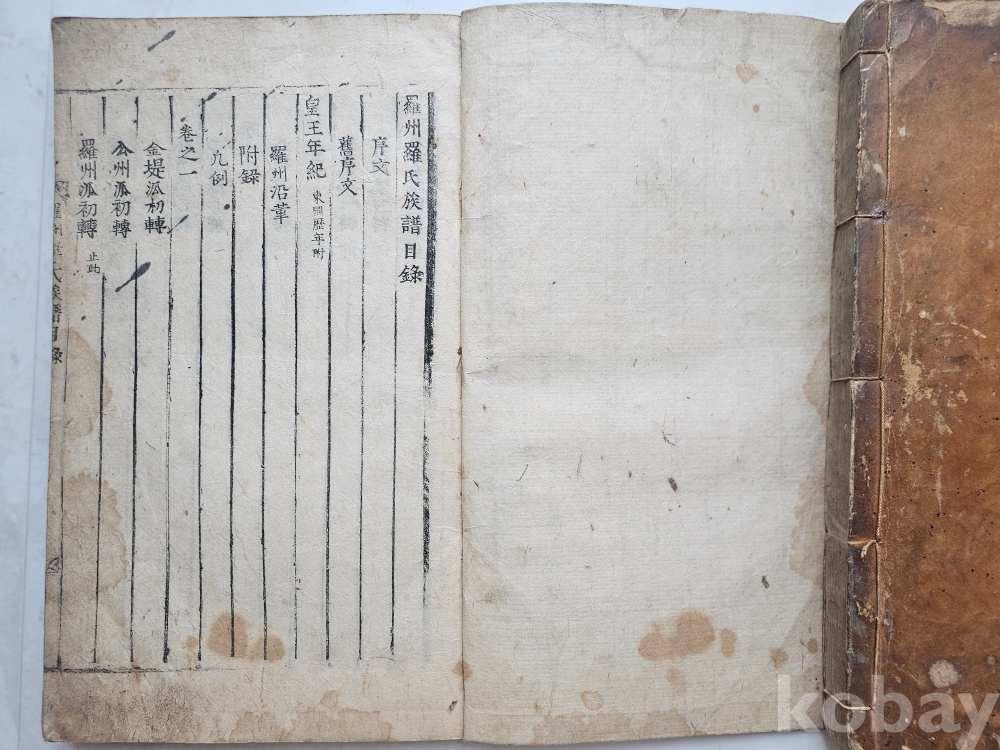 羅州羅氏族譜目錄
序文
舊序文
皇王年紀 東國歷年附
羅州沿革
附錄
凡例
卷之一
金堤派初轉
公州派初轉
羅州派初轉 止此
氏族譜目錄
kobay